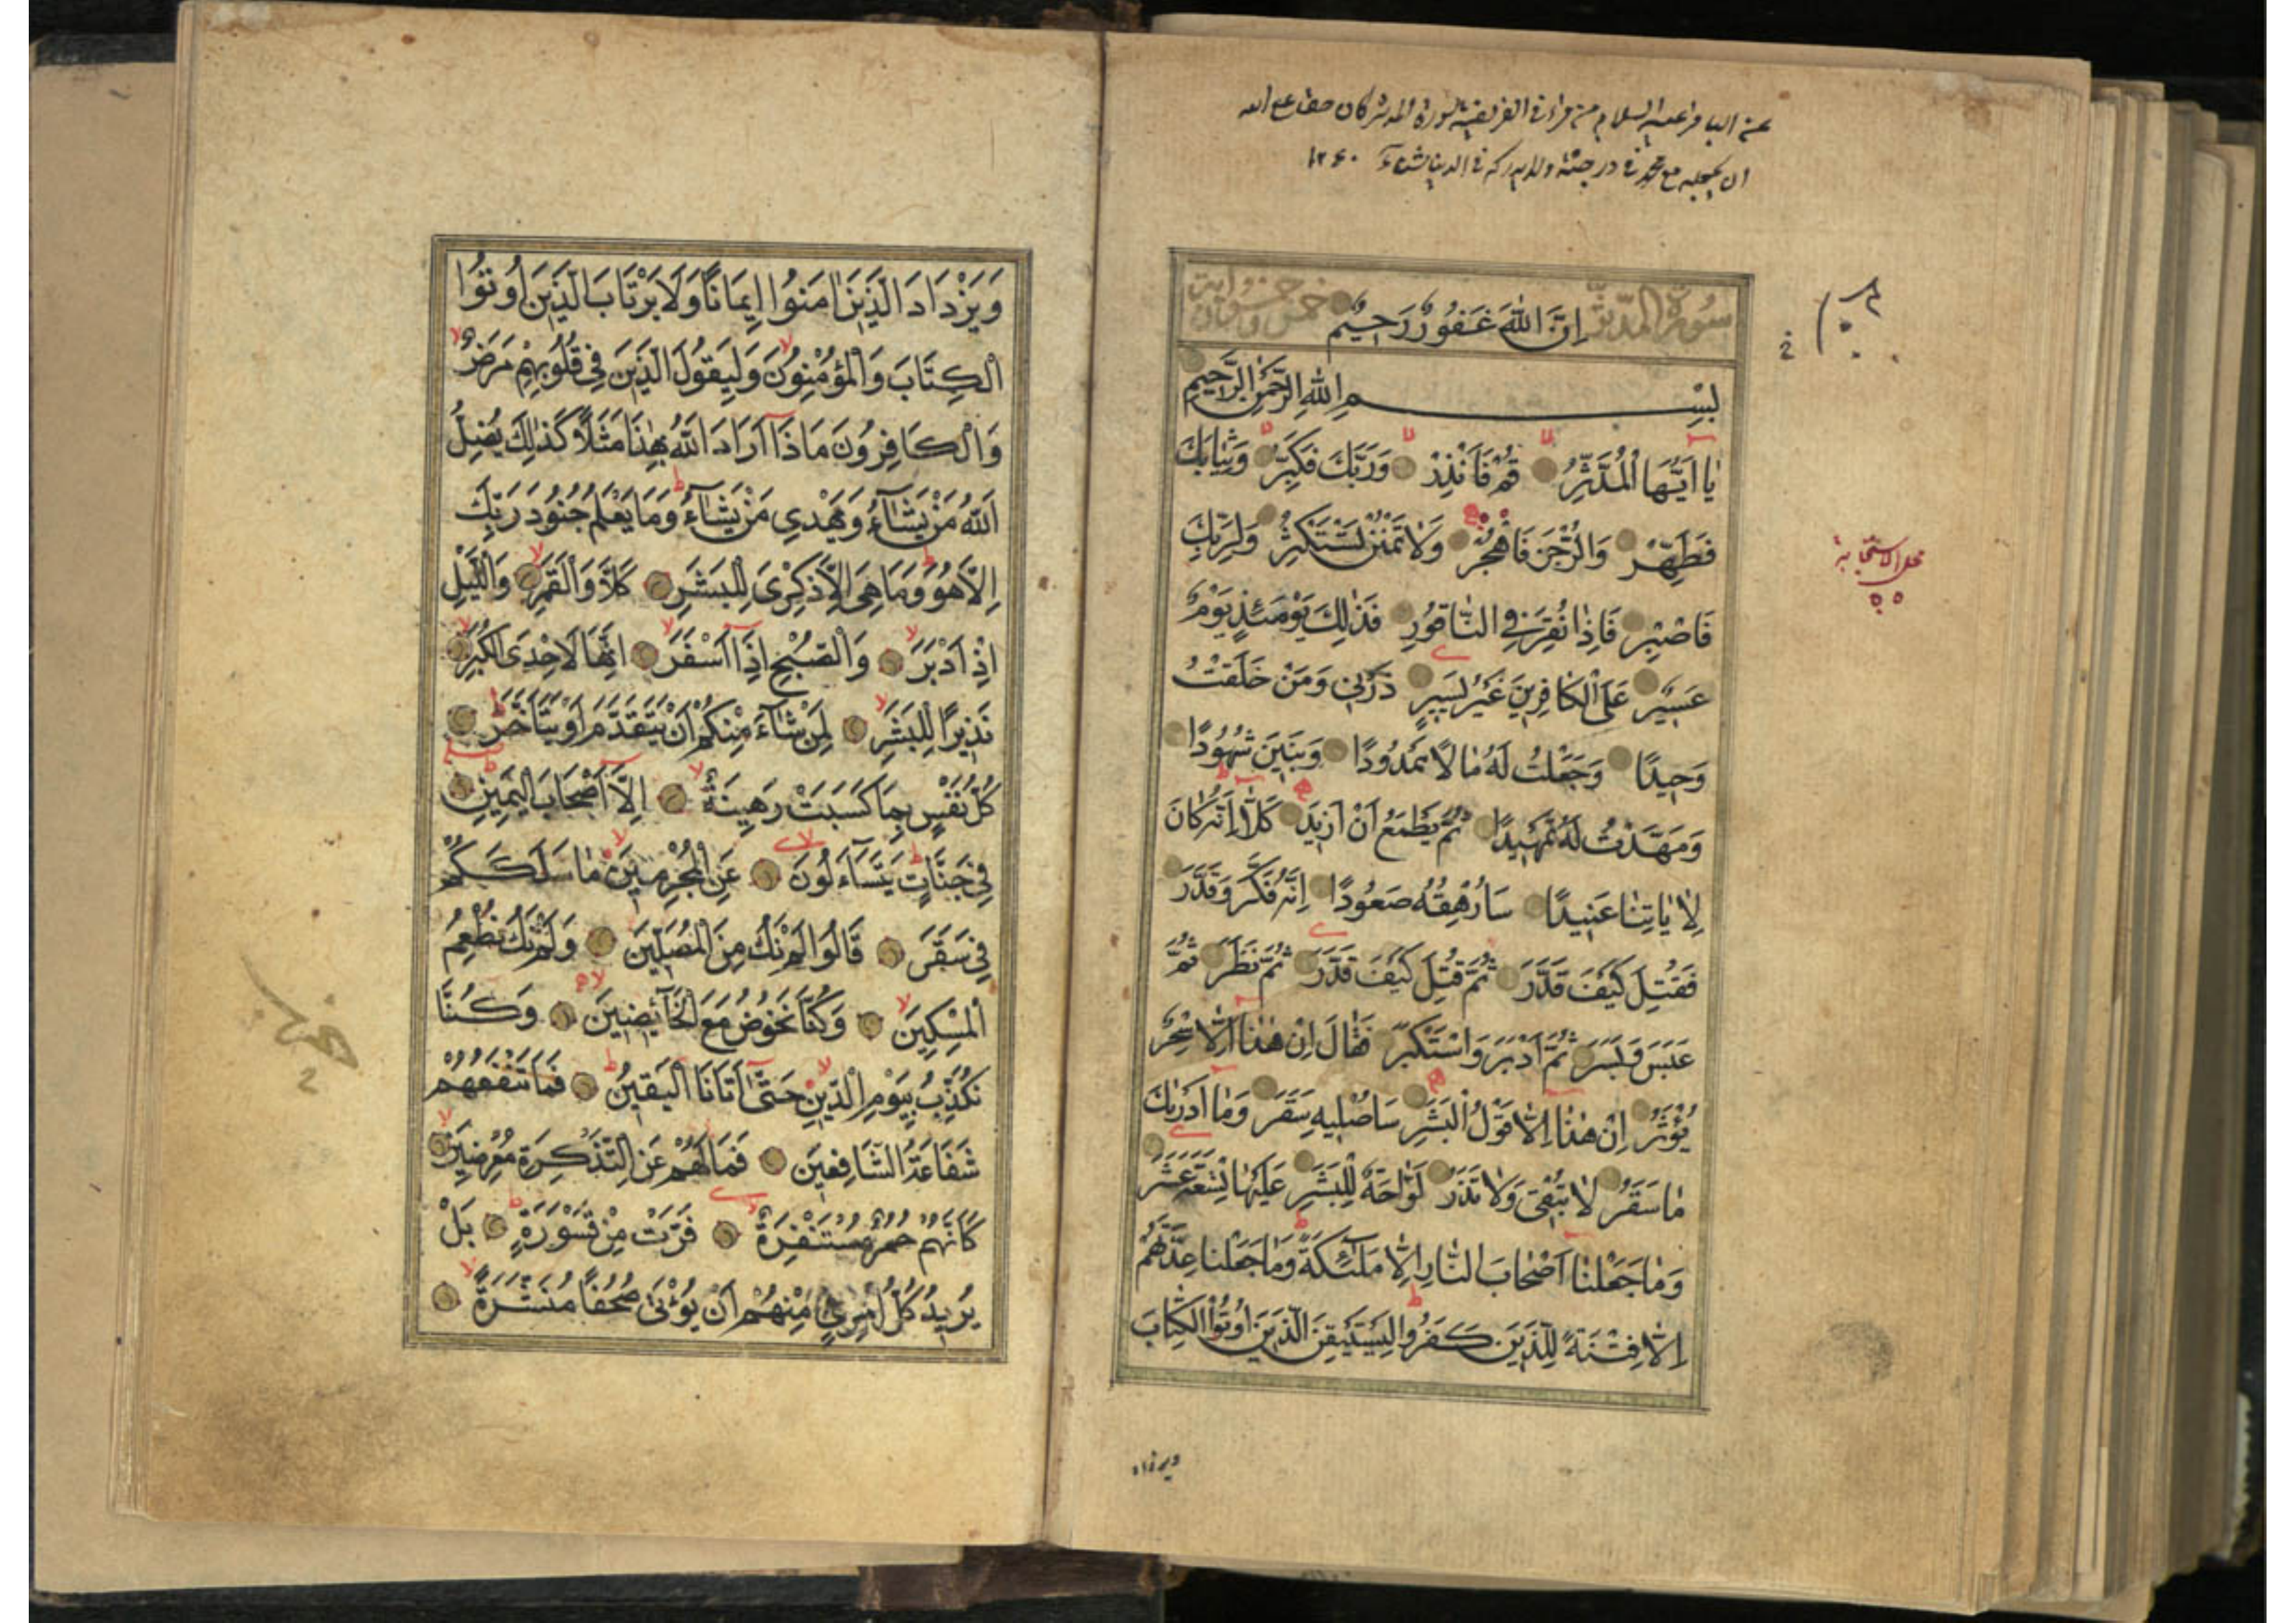 عن الباقر عليه السلام من قرأ في الفريضة سورة المدثر كان حقا على الله
ان يجعله مع محمد في درجته ولا يدركه في الدنيا شقاء ١٢٤٠
سُورَةُ المُدَّثِّر اِنَّ اللهَ غَفُورٌ رَحِيمٌ خمس وخمسون آية
بِسْمِ اللهِ الرَّحْمٰنِ الرَّحِيمِ
يٰا اَيُّهَا الْمُدَّثِّرُ قُمْ فَاَنْذِرْ وَرَبَّكَ فَكَبِّرْ وَثِيٰابَكَ
فَطَهِّرْ وَالرُّجْزَ فَاهْجُرْ وَلٰا تَمْنُنْ تَسْتَكْثِرُ وَلِرَبِّكَ
محل الاستجابة
فَاصْبِرْ فَاِذٰا نُقِرَ فِي النّٰاقُورِ فَذٰلِكَ يَوْمَئِذٍ يَوْمٌ
عَسِيرٌ عَلَى الْكٰافِرِينَ غَيْرُ يَسِيرٍ ذَرْنِي وَمَنْ خَلَقْتُ
وَحِيدًا وَجَعَلْتُ لَهُ مٰالًا مَمْدُودًا وَبَنِينَ شُهُودًا
وَمَهَّدْتُ لَهُ تَمْهِيدًا ثُمَّ يَطْمَعُ اَنْ اَزِيدَ كَلّٰا اِنَّهُ كٰانَ
لِاٰيٰاتِنٰا عَنِيدًا سَاُرْهِقُهُ صَعُودًا اِنَّهُ فَكَّرَ وَقَدَّرَ
فَقُتِلَ كَيْفَ قَدَّرَ ثُمَّ قُتِلَ كَيْفَ قَدَّرَ ثُمَّ نَظَرَ ثُمَّ
عَبَسَ وَبَسَرَ ثُمَّ اَدْبَرَ وَاسْتَكْبَرَ فَقٰالَ اِنْ هٰذٰا اِلّٰا سِحْرٌ
يُؤْثَرُ اِنْ هٰذٰا اِلّٰا قَوْلُ الْبَشَرِ سَاُصْلِيهِ سَقَرَ وَمٰا اَدْرٰىكَ
مٰا سَقَرُ لٰا تُبْقِي وَلٰا تَذَرُ لَوّٰاحَةٌ لِلْبَشَرِ عَلَيْهٰا تِسْعَةَ عَشَرَ
وَمٰا جَعَلْنٰا اَصْحٰابَ النّٰارِ اِلّٰا مَلٰٓئِكَةً وَمٰا جَعَلْنٰا عِدَّتَهُمْ
اِلّٰا فِتْنَةً لِلَّذِينَ كَفَرُوا لِيَسْتَيْقِنَ الَّذِينَ اُوتُوا الْكِتٰابَ
ويزداد
وَيَزْدَادَ الَّذِينَ اٰمَنُوا اِيمَانًا وَلَا يَرْتَابَ الَّذِينَ اُوتُوا
الْكِتَابَ وَالْمُؤْمِنُونَ وَلِيَقُولَ الَّذِينَ فِي قُلُوبِهِمْ مَرَضٌ
وَالْكَافِرُونَ مَاذَا اَرَادَ اللّٰهُ بِهٰذَا مَثَلًا كَذٰلِكَ يُضِلُّ
اللّٰهُ مَنْ يَشَاءُ وَيَهْدِي مَنْ يَشَاءُ وَمَا يَعْلَمُ جُنُودَ رَبِّكَ
اِلَّا هُوَ وَمَا هِيَ اِلَّا ذِكْرٰى لِلْبَشَرِ كَلَّا وَالْقَمَرِ وَاللَّيْلِ
اِذْ اَدْبَرَ وَالصُّبْحِ اِذَا اَسْفَرَ اِنَّهَا لَاِحْدَى الْكُبَرِ
نَذِيرًا لِلْبَشَرِ لِمَنْ شَاءَ مِنْكُمْ اَنْ يَتَقَدَّمَ اَوْ يَتَاَخَّرَ
كُلُّ نَفْسٍ بِمَا كَسَبَتْ رَهِينَةٌ اِلَّا اَصْحَابَ الْيَمِينِ
فِي جَنَّاتٍ يَتَسَاءَلُونَ عَنِ الْمُجْرِمِينَ مَا سَلَكَكُمْ
فِي سَقَرَ قَالُوا لَمْ نَكُ مِنَ الْمُصَلِّينَ وَلَمْ نَكُ نُطْعِمُ
الْمِسْكِينَ وَكُنَّا نَخُوضُ مَعَ الْخَائِضِينَ وَكُنَّا
نُكَذِّبُ بِيَوْمِ الدِّينِ حَتّٰى اَتَانَا الْيَقِينُ فَمَا تَنْفَعُهُمْ
شَفَاعَةُ الشَّافِعِينَ فَمَا لَهُمْ عَنِ التَّذْكِرَةِ مُعْرِضِينَ
كَاَنَّهُمْ حُمُرٌ مُسْتَنْفِرَةٌ فَرَّتْ مِنْ قَسْوَرَةٍ بَلْ
يُرِيدُ كُلُّ امْرِئٍ مِنْهُمْ اَنْ يُؤْتٰى صُحُفًا مُنَشَّرَةً